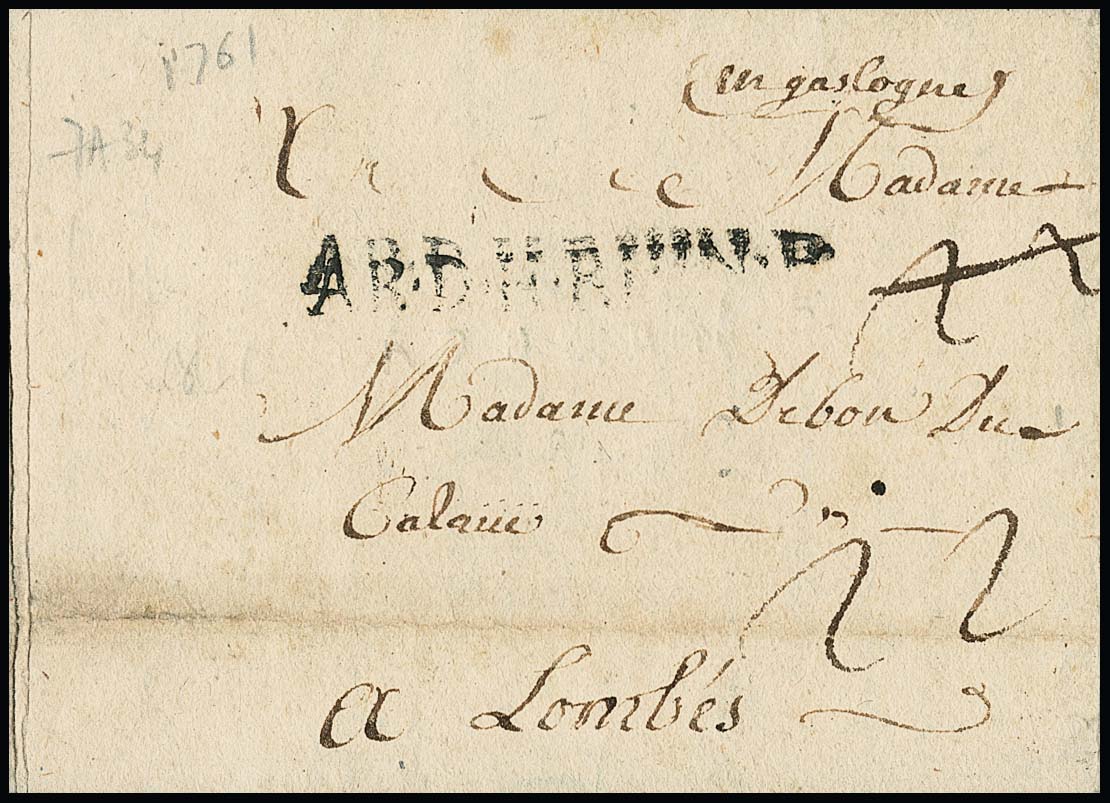 1761
7A34
(en gascogne)
Madame
AR.D.H.RHIN.
Madame Debon Du
Calaïïë
22
a Lombés